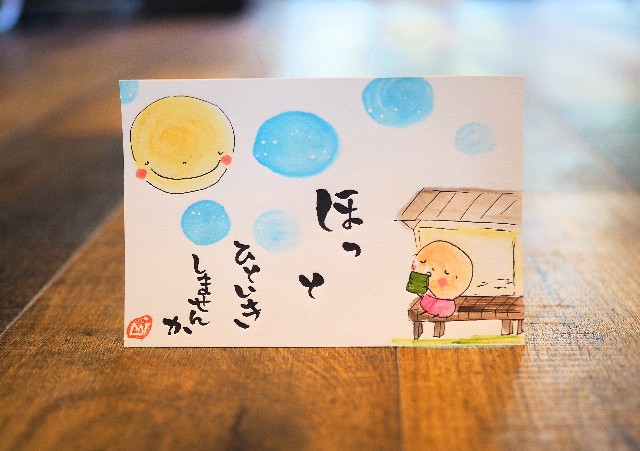 ほっと
ひといき
しませんか